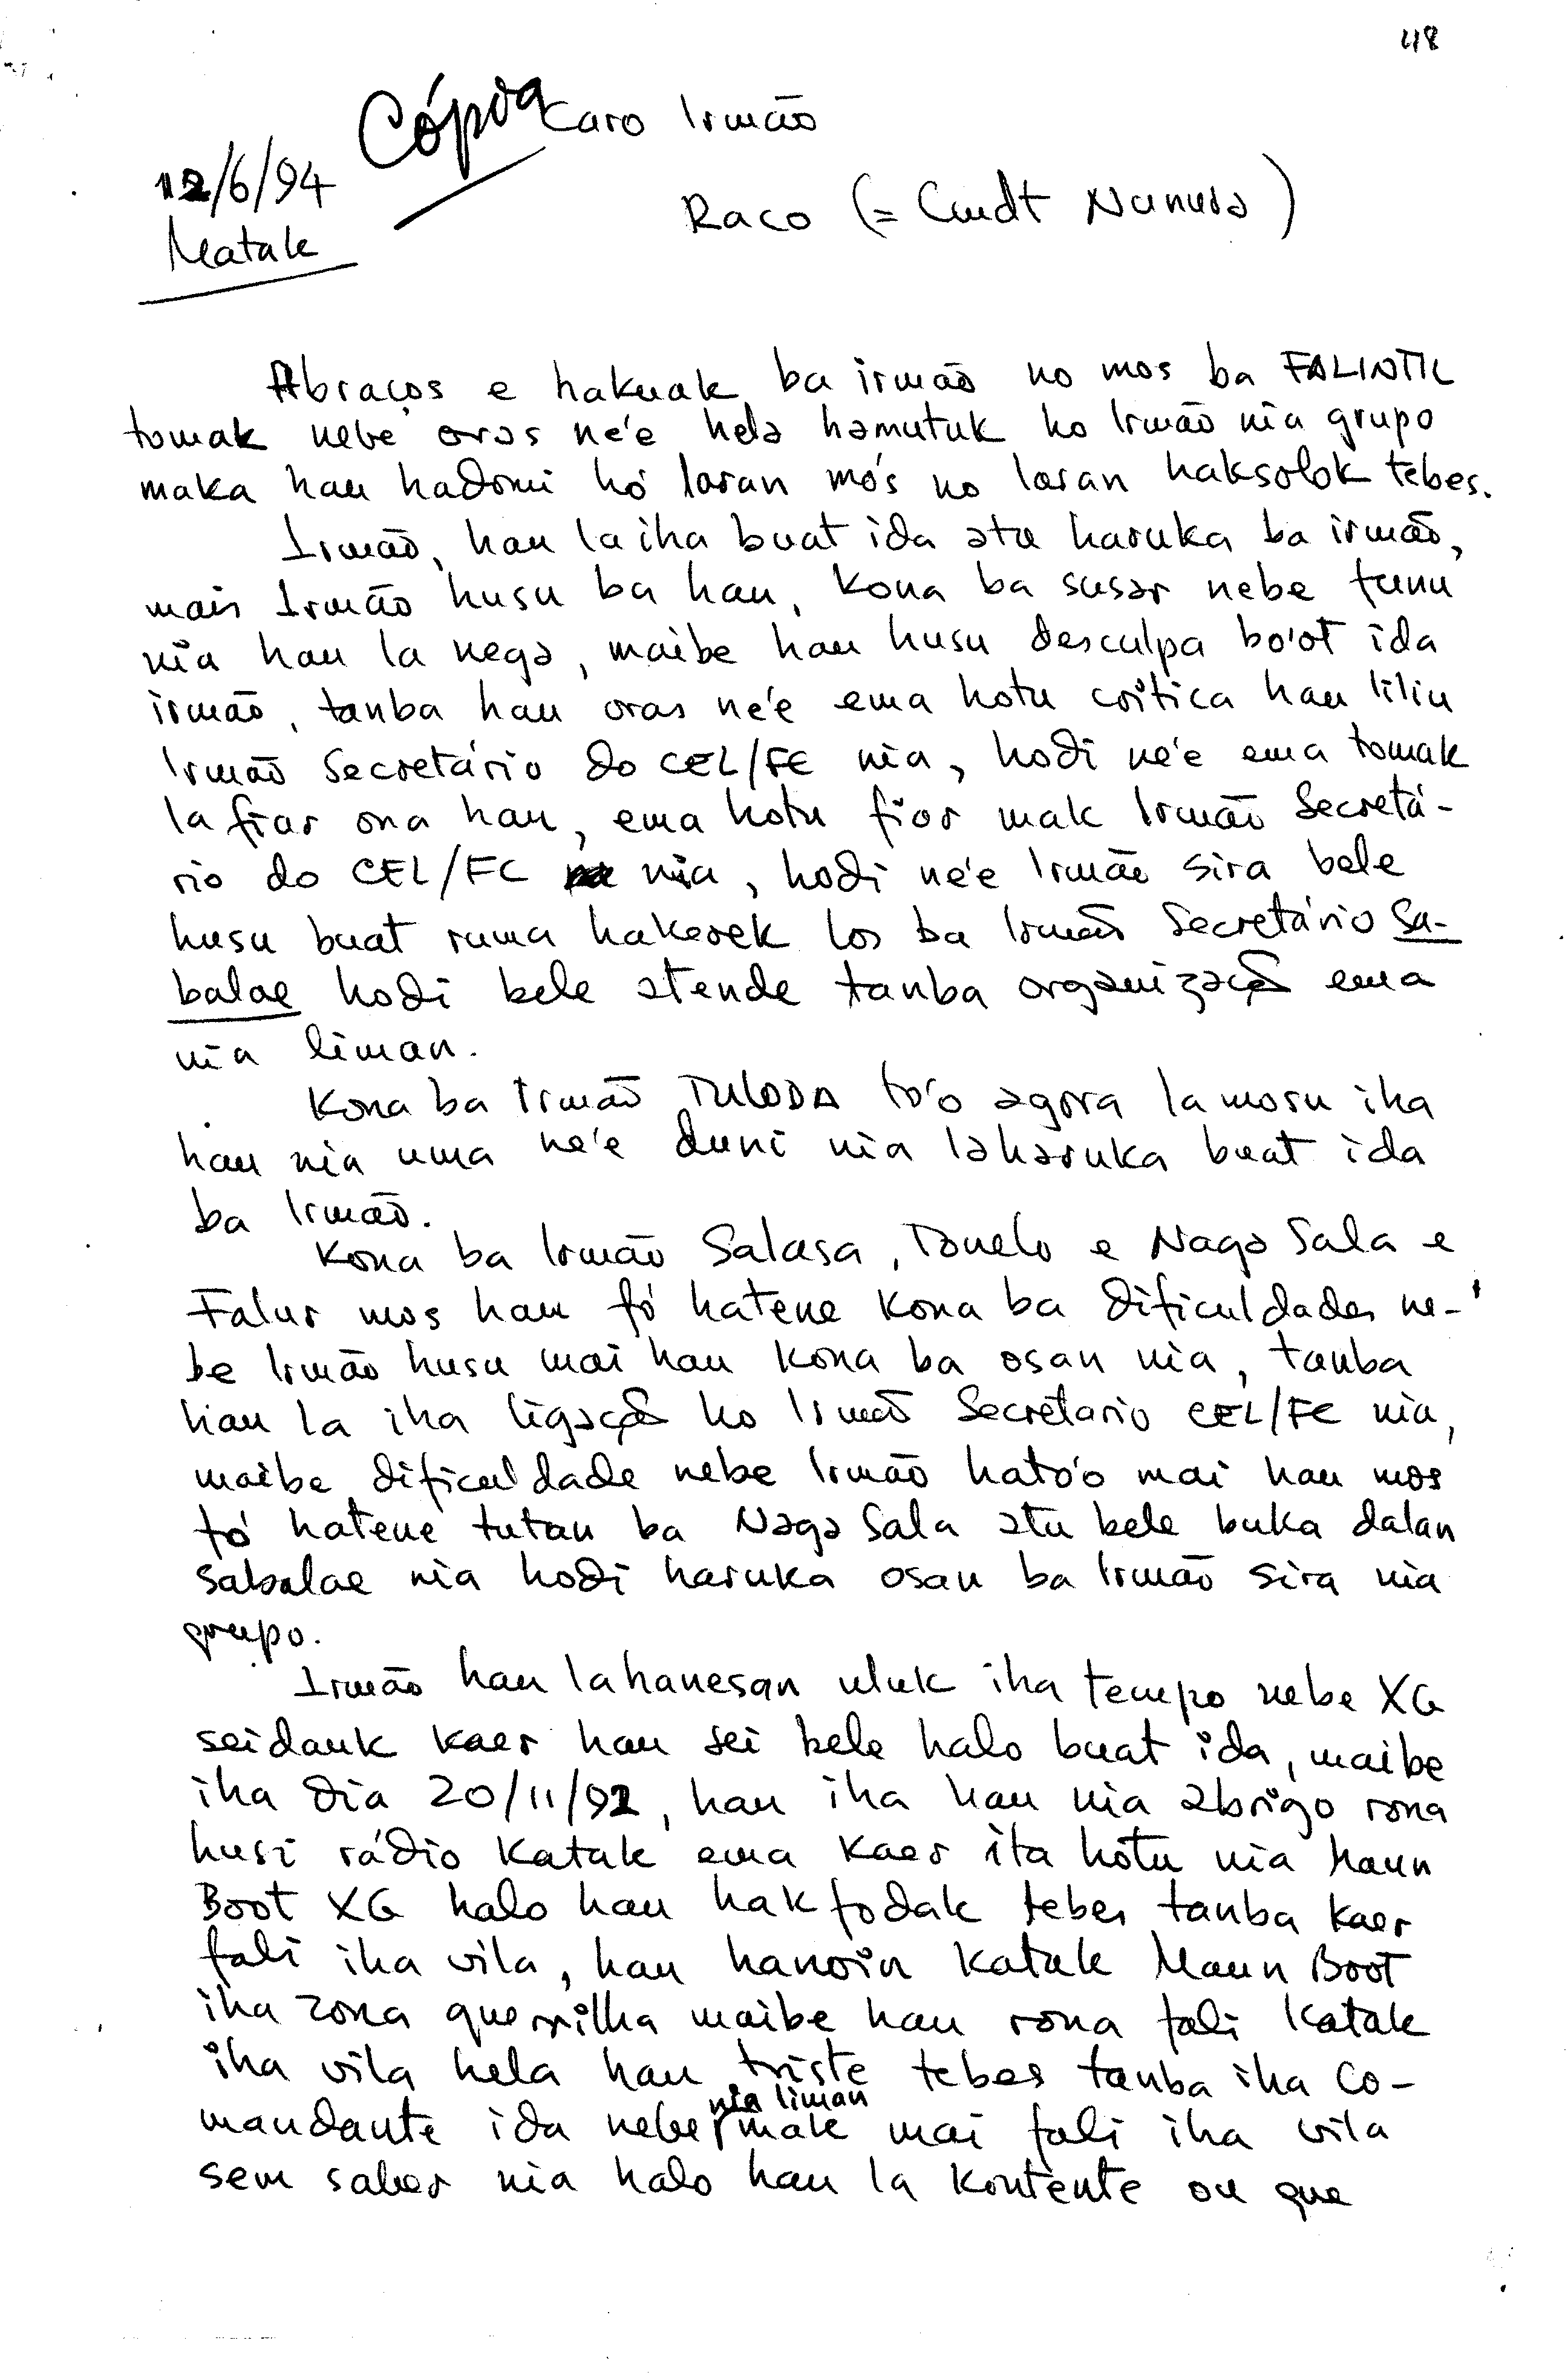 48
Cópia
Caro Irmão
12/6/94
Raco (= Cmdt Nunura)
Matak
Abraços e hakuak ba irmão no mos ba FALINTIL
tomak nebe oras ne'e hela hamutuk ho Irmão nia grupo
maka hau hadomi hó laran mós no laran haksolok tebes.
Irmão, hau la iha buat ida atu haruka ba irmão,
mais Irmão husu ba hau, kona ba susar nebe funu
nia hau la nega, maibe hau husu desculpa bo'ot ida
irmão, tanba hau oras ne'e ema hotu critica hau liliu
Irmão Secretário do CEL/FE nia, hodi ne'e ema tomak
la fiar ona hau, ema hotu fior mak Irmão Secretá-
rio do CEL/FC nia, hodi ne'e Irmão sira bele
husu buat ruma hakerek los ba Irmão Secretário Sa-
balae hodi bele atende tanba organização ema
nia liman.
Kona ba Irmão TULODA to'o agora la mosu iha
hau nia uma ne'e duni nia laharuka buat ida
ba Irmão.
Kona ba Irmão Salasa, Tonelo e Naga Sala e
Falur mos hau fó hatene kona ba dificuldades ne-
be Irmão husu mai hau kona ba osan nia, tanba
hau la iha ligação ho Irmão Secretario CEL/FE nia,
maibe dificuldade nebe Irmão hato'o mai hau mos
fó hatene tutan ba Naga Sala atu bele buka dalan
sabalae nia hodi haruka osan ba Irmão sira nia
grupo.
Irmão hau lahanesan uluk iha tempo nebe XG
seidauk kaer hau sei bele halo buat ida, maibe
iha dia 20/11/92, hau iha hau nia abrigo rona
husi rádio katak ema kaer ita hotu nia Maun
Boot XG halo hau hakfodak tebes tanba kaer
fali iha vila, hau hanoin katak Maun Boot
iha zona querrilha maibe hau rona fali katak
iha vila hela hau triste tebes tanba iha Co-
mandante ida nebe nia liman mak mai fali iha vila
sem saber nia halo hau la kontente ou que